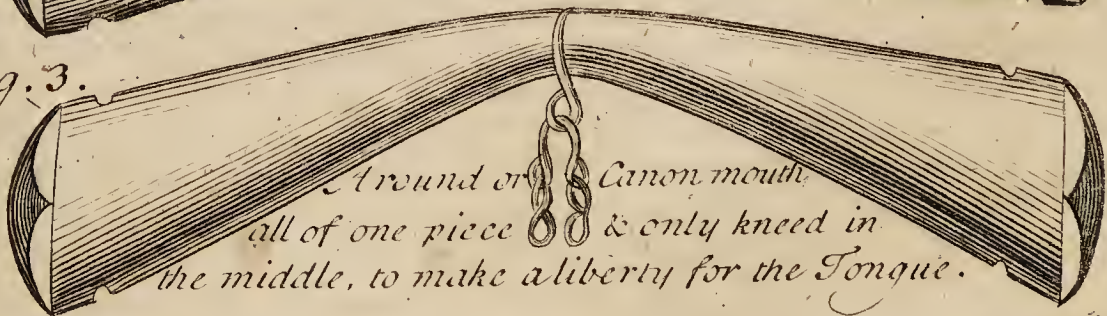 g. 3.
A round or Canon mouth,
all of one piece & only kneed in
the middle, to make a liberty for the Tongue.